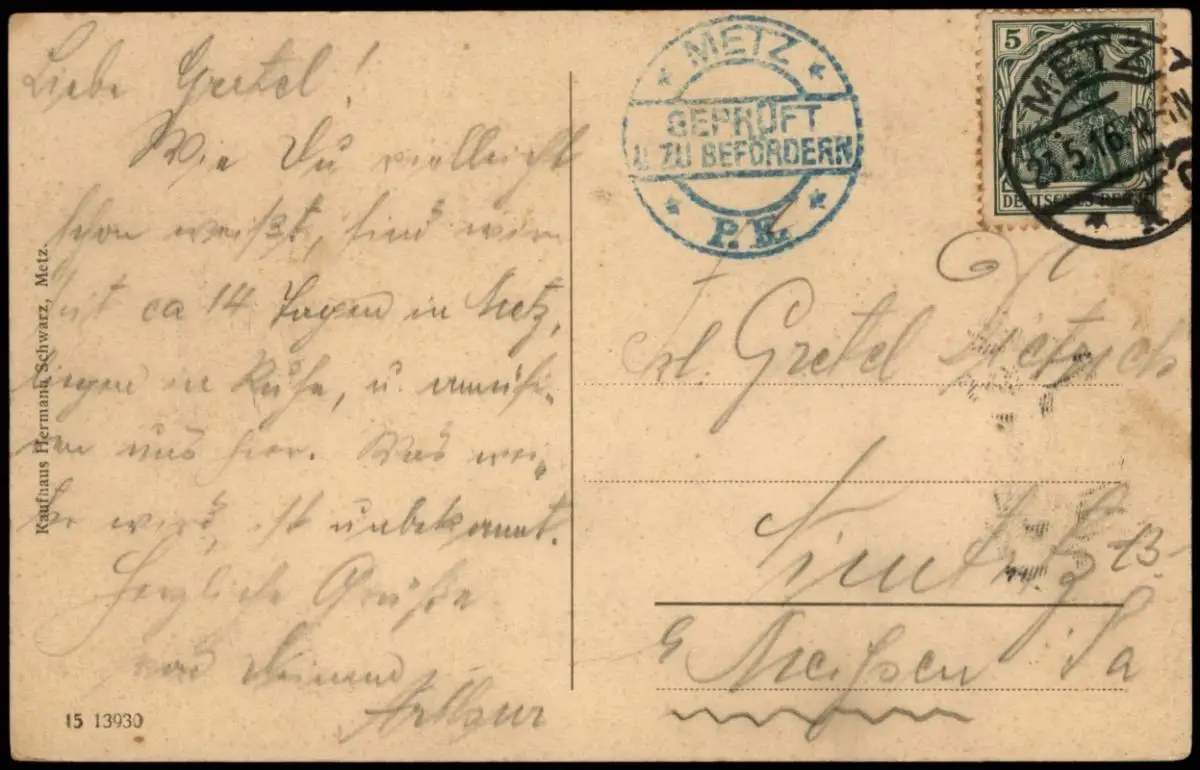 Liebe Gretel!
Wie Du vielleicht
schon weißt, sind wir
seit ca 14 Tagen in Metz,
liegen in Ruhe, u. amüsi-
ren uns hier. Was wei-
ter wird, ist unbekannt.
Herzliche Grüße
von Deinem
Arthur
Kaufhaus Hermann Schwarz, Metz.
15 13930
METZ
GEPRÜFT
U. ZU BEFÖRDERN
P. K.
5
DEUTSCHES REICH
METZ
23.5.16. 12-1N
Frl. Gretel Dietrich
13
Meißen Sa